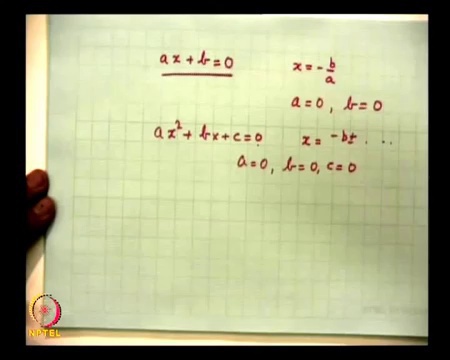 ax + b = 0    x = - b/a
a = 0, b = 0
ax² + bx + c = 0    x = -b± . . .
a = 0, b = 0, c = 0
NPTEL